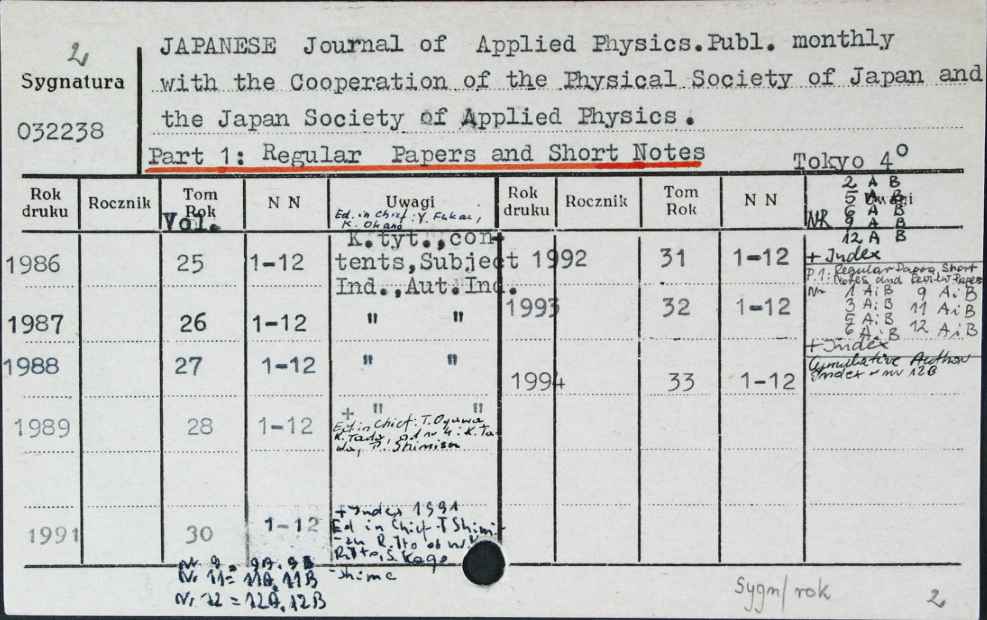 2
JAPANESE Journal of Applied Physics.Publ. monthly
Sygnatura
with the Cooperation of the Physical Society of Japan and
032238
the Japan Society of Applied Physics.
Part 1: Regular Papers and Short Notes
Tokyo 4°
Rok druku Rocznik Tom Rok N N Uwagi Rok druku Rocznik Tom Rok N N Uwagi
Vol.
Ed. in Chief: Y. Fukai,
K. Okano
2 A B
5 A B
6 A B
NR 9 A B
12 A B
+ Index
K.tyt.,con-
1986 25 1-12 tents,Subject 1992 31 1-12
Ind.,Aut.Ind.
P.1: Regular Papers, Short
Notes and Review Papers
1993 32 1-12
Nr 1 A i B 9 A i B
3 A i B 11 A i B
5 A i B 12 A i B
6 A i B
+ Index
1987 26 1-12 " "
1988 27 1-12 " "
1994 33 1-12
Cumulative Author
Index w nr 12B
+ " "
1989 28 1-12
Ed. in Chief: T. Ogawa
K. Tada, od nr 4: K. Ta-
da,
+ Index 1991
1991 30 1-12
Ed in Chief T Shimi-
Ritto, S. Kago-
shima
Nr 9 = 9A, 9B
Nr 11 = 11A, 11B
Nr 12 = 12A, 12B
Sygn/rok
2